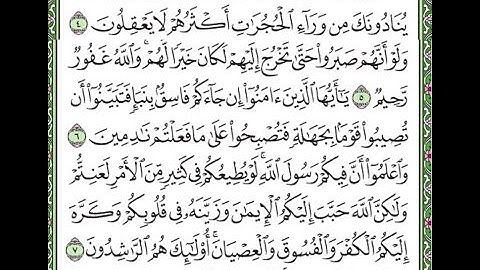 يُنَادُونَكَ مِن وَرَآءِ ٱلْحُجُرَٰتِ أَكْثَرُهُمْ لَا يَعْقِلُونَ ٤
وَلَوْ أَنَّهُمْ صَبَرُوا۟ حَتَّىٰ تَخْرُجَ إِلَيْهِمْ لَكَانَ خَيْرًا لَّهُمْ ۚ وَٱللَّهُ غَفُورٌ
رَّحِيمٌ ٥ يَـٰٓأَيُّهَا ٱلَّذِينَ ءَامَنُوٓا۟ إِن جَآءَكُمْ فَاسِقٌۢ بِنَبَإٍ فَتَبَيَّنُوٓا۟ أَن
تُصِيبُوا۟ قَوْمًۢا بِجَهَـٰلَةٍ فَتُصْبِحُوا۟ عَلَىٰ مَا فَعَلْتُمْ نَـٰدِمِينَ ٦
وَٱعْلَمُوٓا۟ أَنَّ فِيكُمْ رَسُولَ ٱللَّهِ ۚ لَوْ يُطِيعُكُمْ فِى كَثِيرٍ مِّنَ ٱلْأَمْرِ لَعَنِتُّمْ
وَلَـٰكِنَّ ٱللَّهَ حَبَّبَ إِلَيْكُمُ ٱلْإِيمَـٰنَ وَزَيَّنَهُۥ فِى قُلُوبِكُمْ وَكَرَّهَ
إِلَيْكُمُ ٱلْكُفْرَ وَٱلْفُسُوقَ وَٱلْعِصْيَانَ ۚ أُو۟لَـٰٓئِكَ هُمُ ٱلرَّٰشِدُونَ ٧